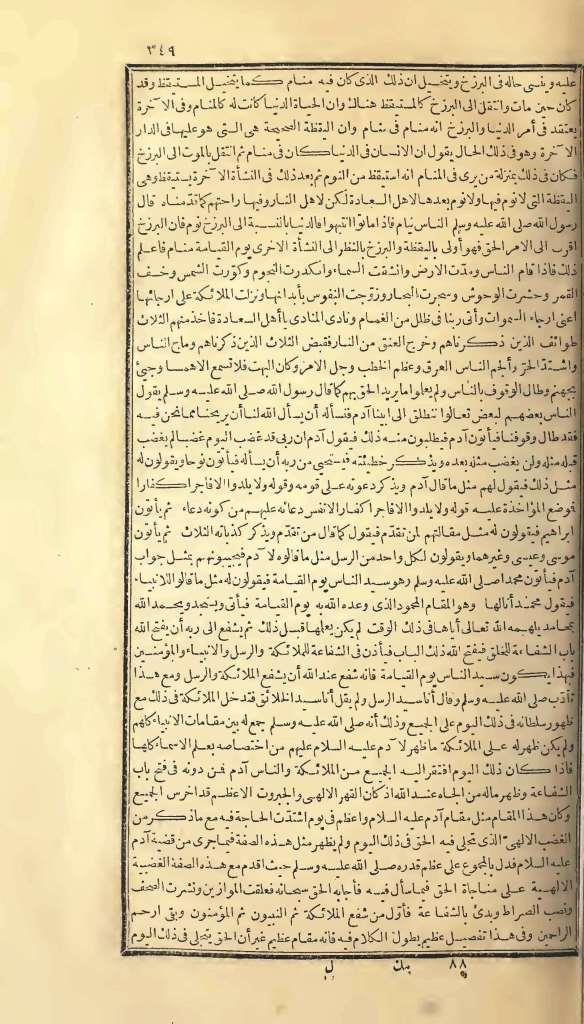 ٣٤٩
عليه وينسى حاله فى البرزخ ويتخيل ان ذلك الذى كان فيه منام كما يتخيل المستيقظ وقد
كان حين مات وانتقل الى البرزخ كالمستيقظ هناك وان الحياة الدنيا كانت له كالمنام وفى الآخرة
يعتقد فى أمر الدنيا والبرزخ انه منام فى منام وان اليقظة الصحيحة هى التى هو عليها فى الدار
الآخرة وهو فى ذلك الحال يقول ان الانسان فى الدنيا كان فى منام ثم انتقل بالموت الى البرزخ
فكان فى ذلك بمنزلة من يرى فى المنام انه استيقظ من النوم ثم بعد ذلك فى النشأة الآخرة يستيقظ وهى
اليقظة التى لا نوم فيها ولا نوم بعدها لاهل السعادة لكن لاهل النار وفيها راحتهم كما قدمناه قال
رسول الله صلى الله عليه وسلم الناس نيام فاذا ماتوا انتبهوا فالدنيا بالنسبة الى البرزخ نوم فان البرزخ
أقرب الى الامر الحق فهو أولى باليقظة والبرزخ بالنظر الى النشأة الاخرى يوم القيامة منام فاعلم
ذلك فاذا قام الناس ومدّت الارض وانشقت السماء وانكدرت النجوم وكوّرت الشمس وخسف
القمر وحشرت الوحوش وسجرت البحار وزوّجت النفوس بأبدانها ونزلت الملائكة على ارجائها
أعنى ارجاء السموات وأتى ربنا فى ظلل من الغمام ونادى المنادى يا أهل السعادة فأخذ منهم الثلاث
طوائف الذين ذكرناهم وخرج العنق من النار فقبض الثلاث الذين ذكرناهم وماج الناس
واشتدّ الحرّ وألجم الناس العرق وعظم الخطب وجل الامر وكان البهت فلا تسمع الا همسا وجىء
بجهنم وطال الوقوف بالناس ولم يعلموا ما يريد الحق بهم كما قال رسول الله صلى الله عليه وسلم يقول
الناس بعضهم لبعض تعالوا ننطلق الى ابينا آدم فنسأله أن يسأل الله لنا أن يريحنا مما نحن فيه
فقد طال وقوفنا فيأتون آدم فيطلبون منه ذلك فيقول آدم ان ربى قد غضب اليوم غضبا لم يغضب
قبله مثله ولن يغضب مثله بعده ويذكر خطيئته فيستحيى من ربه أن يسأله فيأتون نوحا ويقولون له
مثل ذلك فيقول لهم مثل ما قال آدم ويذكر دعوته على قومه وقوله ولا يلدوا الا فاجرا كفارا
فموضع المؤاخذة عليه قوله ولا يلدوا الا فاجرا كفارا لا نفس دعائه عليهم من كونه دعاء ثم يأتون
ابراهيم فيقولون له مثل مقالتهم لمن تقدّم فيقول كما قال من تقدّم ويذكر كذباته الثلاث ثم يأتون
موسى وعيسى وغيرهما ويقولون لكل واحد من الرسل مثل ما قالوه لآدم فيجيبونهم بمثل جواب
آدم فيأتون محمدا صلى الله عليه وسلم وهو سيد الناس يوم القيامة فيقولون له مثل ما قالوا للانبياء
فيقول محمد أنا لها وهو المقام المحمود الذى وعده الله به يوم القيامة فيأتى ويسجد ويحمد الله
بمحامد يلهمه الله تعالى اياها فى ذلك الوقت لم يكن يعلمها قبل ذلك ثم يشفع الى ربه أن يفتح الله
باب الشفاعة للخلق فيفتح الله ذلك الباب فيأذن فى الشفاعة للملائكة والرسل والانبياء والمؤمنين
فبهذا يكون سيد الناس يوم القيامة فانه شفع عند الله أن يشفع الملائكة والرسل ومع هذا
تأدّب صلى الله عليه وسلم وقال أنا سيد الرسل ولم يقل أنا سيد الخلائق فتدخل الملائكة فى ذلك مع
ظهور سلطانه فى ذلك اليوم على الجميع وذلك أنه صلى الله عليه وسلم جمع له بين مقامات الانبياء كلهم
ولم يكن ظهر له على الملائكة ما ظهر لآدم عليه السلام عليهم من اختصاصه بعلم الاسماء كلها
فاذا كان ذلك اليوم افتقر اليه الجميع من الملائكة والناس آدم فمن دونه فى فتح باب
الشفاعة وظهر ماله من الجاه عند الله اذ كان القهر الالهى والجبروت الاعظم قد اخرس الجميع
وكان هذا المقام مثل مقام آدم عليه السلام واعظم فى يوم اشتدّت الحاجة فيه مع ماذكر من
الغضب الالهىّ الذى تجلى فيه الحق فى ذلك اليوم ولم يظهر مثل هذه الصفة فيما جرى من قضية آدم
عليه السلام فدل بالمجموع على عظم قدره صلى الله عليه وسلم حيث اقدم مع هذه الصفة الغضبية
الالهية على مناجاة الحق فيما سأل فيه فأجابه الحق سبحانه فعلقت الموازين ونشرت الصحف
ونصب الصراط وبدئ بالشفاعة فأوّل من شفع الملائكة ثم النبيون ثم المؤمنون وبقى ارحم
الراحمين وفى هذا تفصيل عظيم يطول الكلام فيه فانه مقام عظيم غير أن الحق يتجلى فى ذلك اليوم
٨٨ مك ل